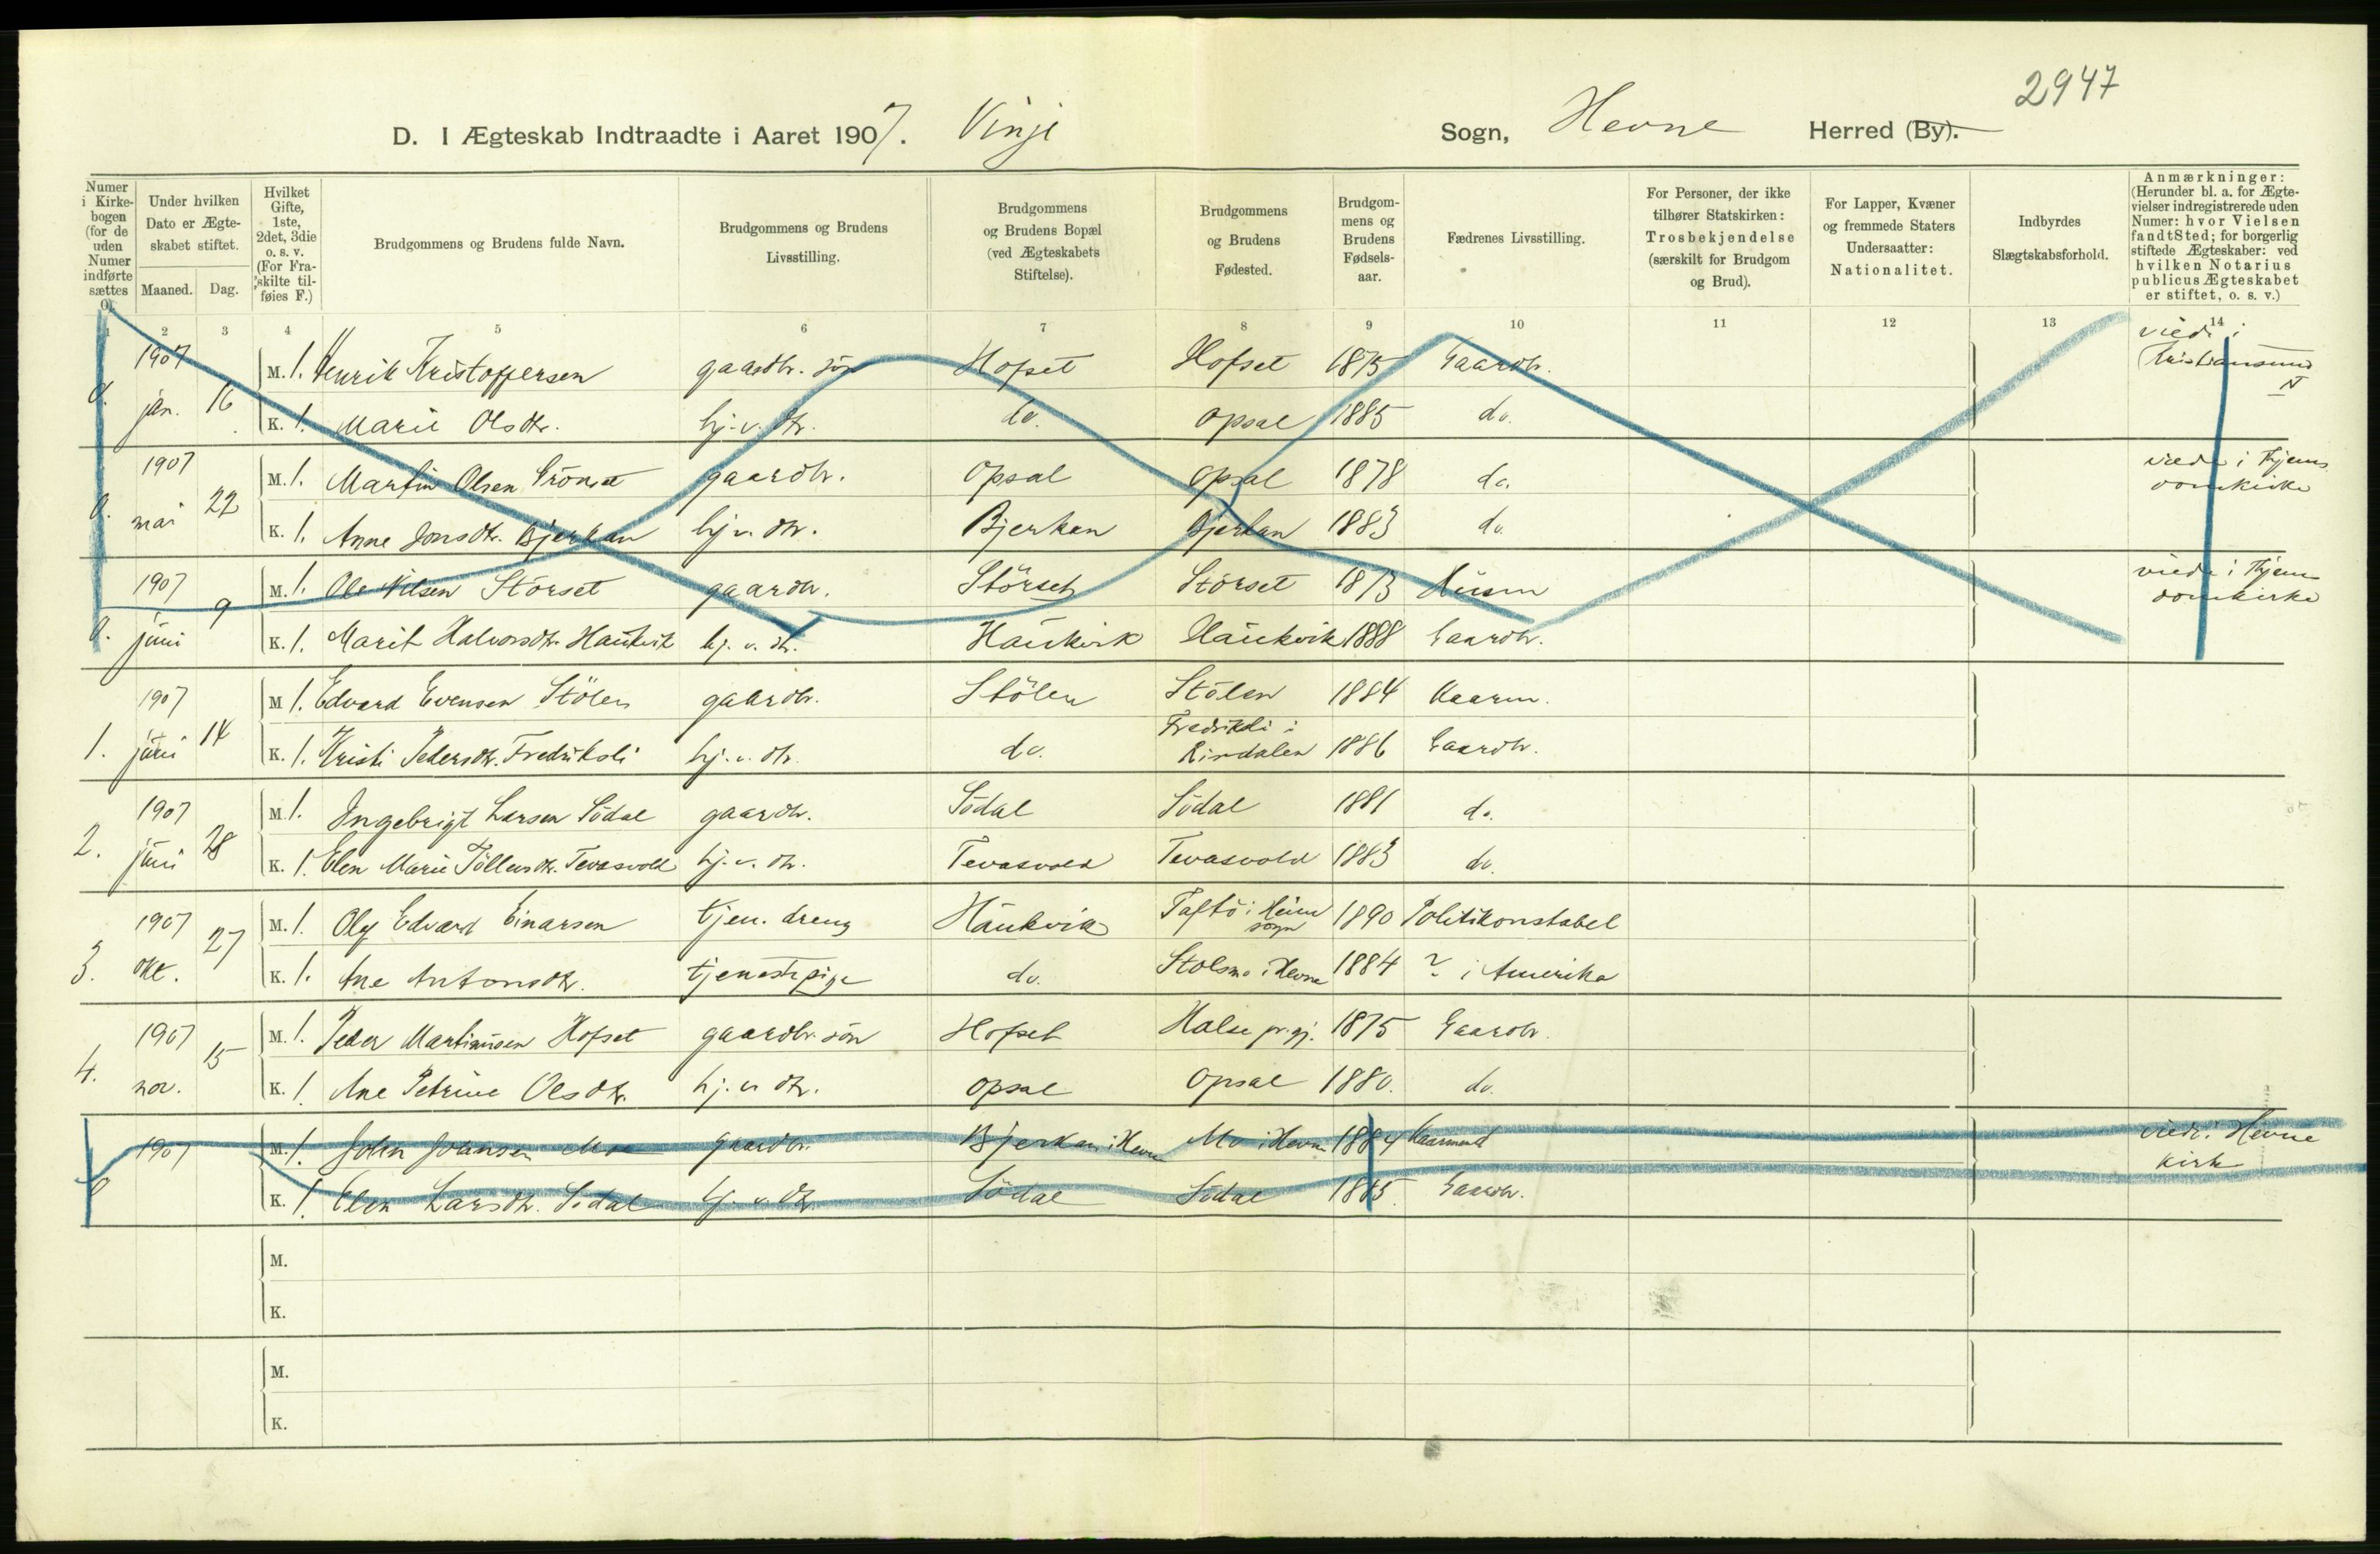 2947
D. I Ægteskab Indtraadte i Aaret 1907. Vinje Sogn, Hevne Herred (By).
Numer i Kirke-bogen (for de uden Numer indførte sættes 0).
Under hvilken Dato er Ægte-skabet stiftet.
Maaned. Dag.
Hvilket Gifte, 1ste, 2det, 3die o. s. v. (For Fra-skilte til-føies F.)
Brudgommens og Brudens fulde Navn.
Brudgommens og Brudens Livsstilling.
Brudgommens og Brudens Bopæl (ved Ægteskabets Stiftelse).
Brudgommens og Brudens Fødested.
Brudgom-mens og Brudens Fødsels-aar.
Fædrenes Livsstilling.
For Personer, der ikke tilhører Statskirken: Trosbekjendelse (særskilt for Brudgom og Brud).
For Lapper, Kvæner og fremmede Staters Undersaatter: Nationalitet.
Indbyrdes Slægtskabsforhold.
Anmærkninger: (Herunder bl. a. for Ægte-vielser indregistrerede uden Numer: hvor Vielsen fandt Sted; for borgerlig stiftede Ægteskaber: ved hvilken Notarius publicus Ægteskabet er stiftet, o. s. v.)
1 2 3 4 5 6 7 8 9 10 11 12 13 14
0. 1907 jan. 16 M. 1. Henrik Kristoffersen gaardbr. sön Hofset Hofset 1875 Gaardbr. viede i Kristiansund N
K. 1. Marie Olsdtr. hj. v. dtr. do. Opsal 1885 do.
0. 1907 mai 22 M. 1. Martin Olsen Grönset gaardbr. Opsal Opsal 1878 do. viede i Thjems domkirke
K. 1. Anne Jonsdtr. Bjerkan hj. v. dtr. Bjerkan Bjerkan 1883 do.
0. 1907 juni 9 M. 1. Ole Nilsen Störset gaardbr. Störset Störset 1873 Husm viede i Thjems domkirke
K. 1. Marit Halvorsdtr. Haukvik hj. v. dtr. Haukvik Haukvik 1888 Gaardbr.
1. 1907 juni 14 M. 1. Edvard Evensen Stölen gaardbr. Stölen Stölen 1884 Kaarm.
K. 1. Kristi Pedersdtr. Fredriksli hj. v. dtr. do. Fredriksli i Rindalen 1886 Gaardbr.
2. 1907 juni 28 M. 1. Ingebrigt Larsen Södal gaardbr. Södal Södal 1881 do.
K. 1. Elen Marie Töllevsdtr. Tevasvold hj. v. dtr. Tevasvold Tevasvold 1883 do.
3. 1907 okt. 27 M. 1. Oluf Edvard Einarsen tjen. dreng Haukvik Taftö i Heim sogn 1890 Politikonstabel
K. 1. Ane Antonsdtr. tjenestepige do. Stolsmo i Hevne 1884 ? i Amerika
4. 1907 nov. 15 M. 1. Peder Martinusen Hofset gaardbr. sön Hofset Halse pr.gj. 1875 Gaardbr.
K. 1. Ane Petrine Olsdtr. hj. v. dtr. Opsal Opsal 1880. do.
0 1907 M. 1. John Johansen Moe gaardbr. Bjerkan i Hevne Mo i Hevne 1884 Kaarmand viede i Hevne kirke
K. 1. Elen Larsdtr. Södal hj. v. dtr. Södal Södal 1885. Gaardbr.
M.
K.
M.
K.